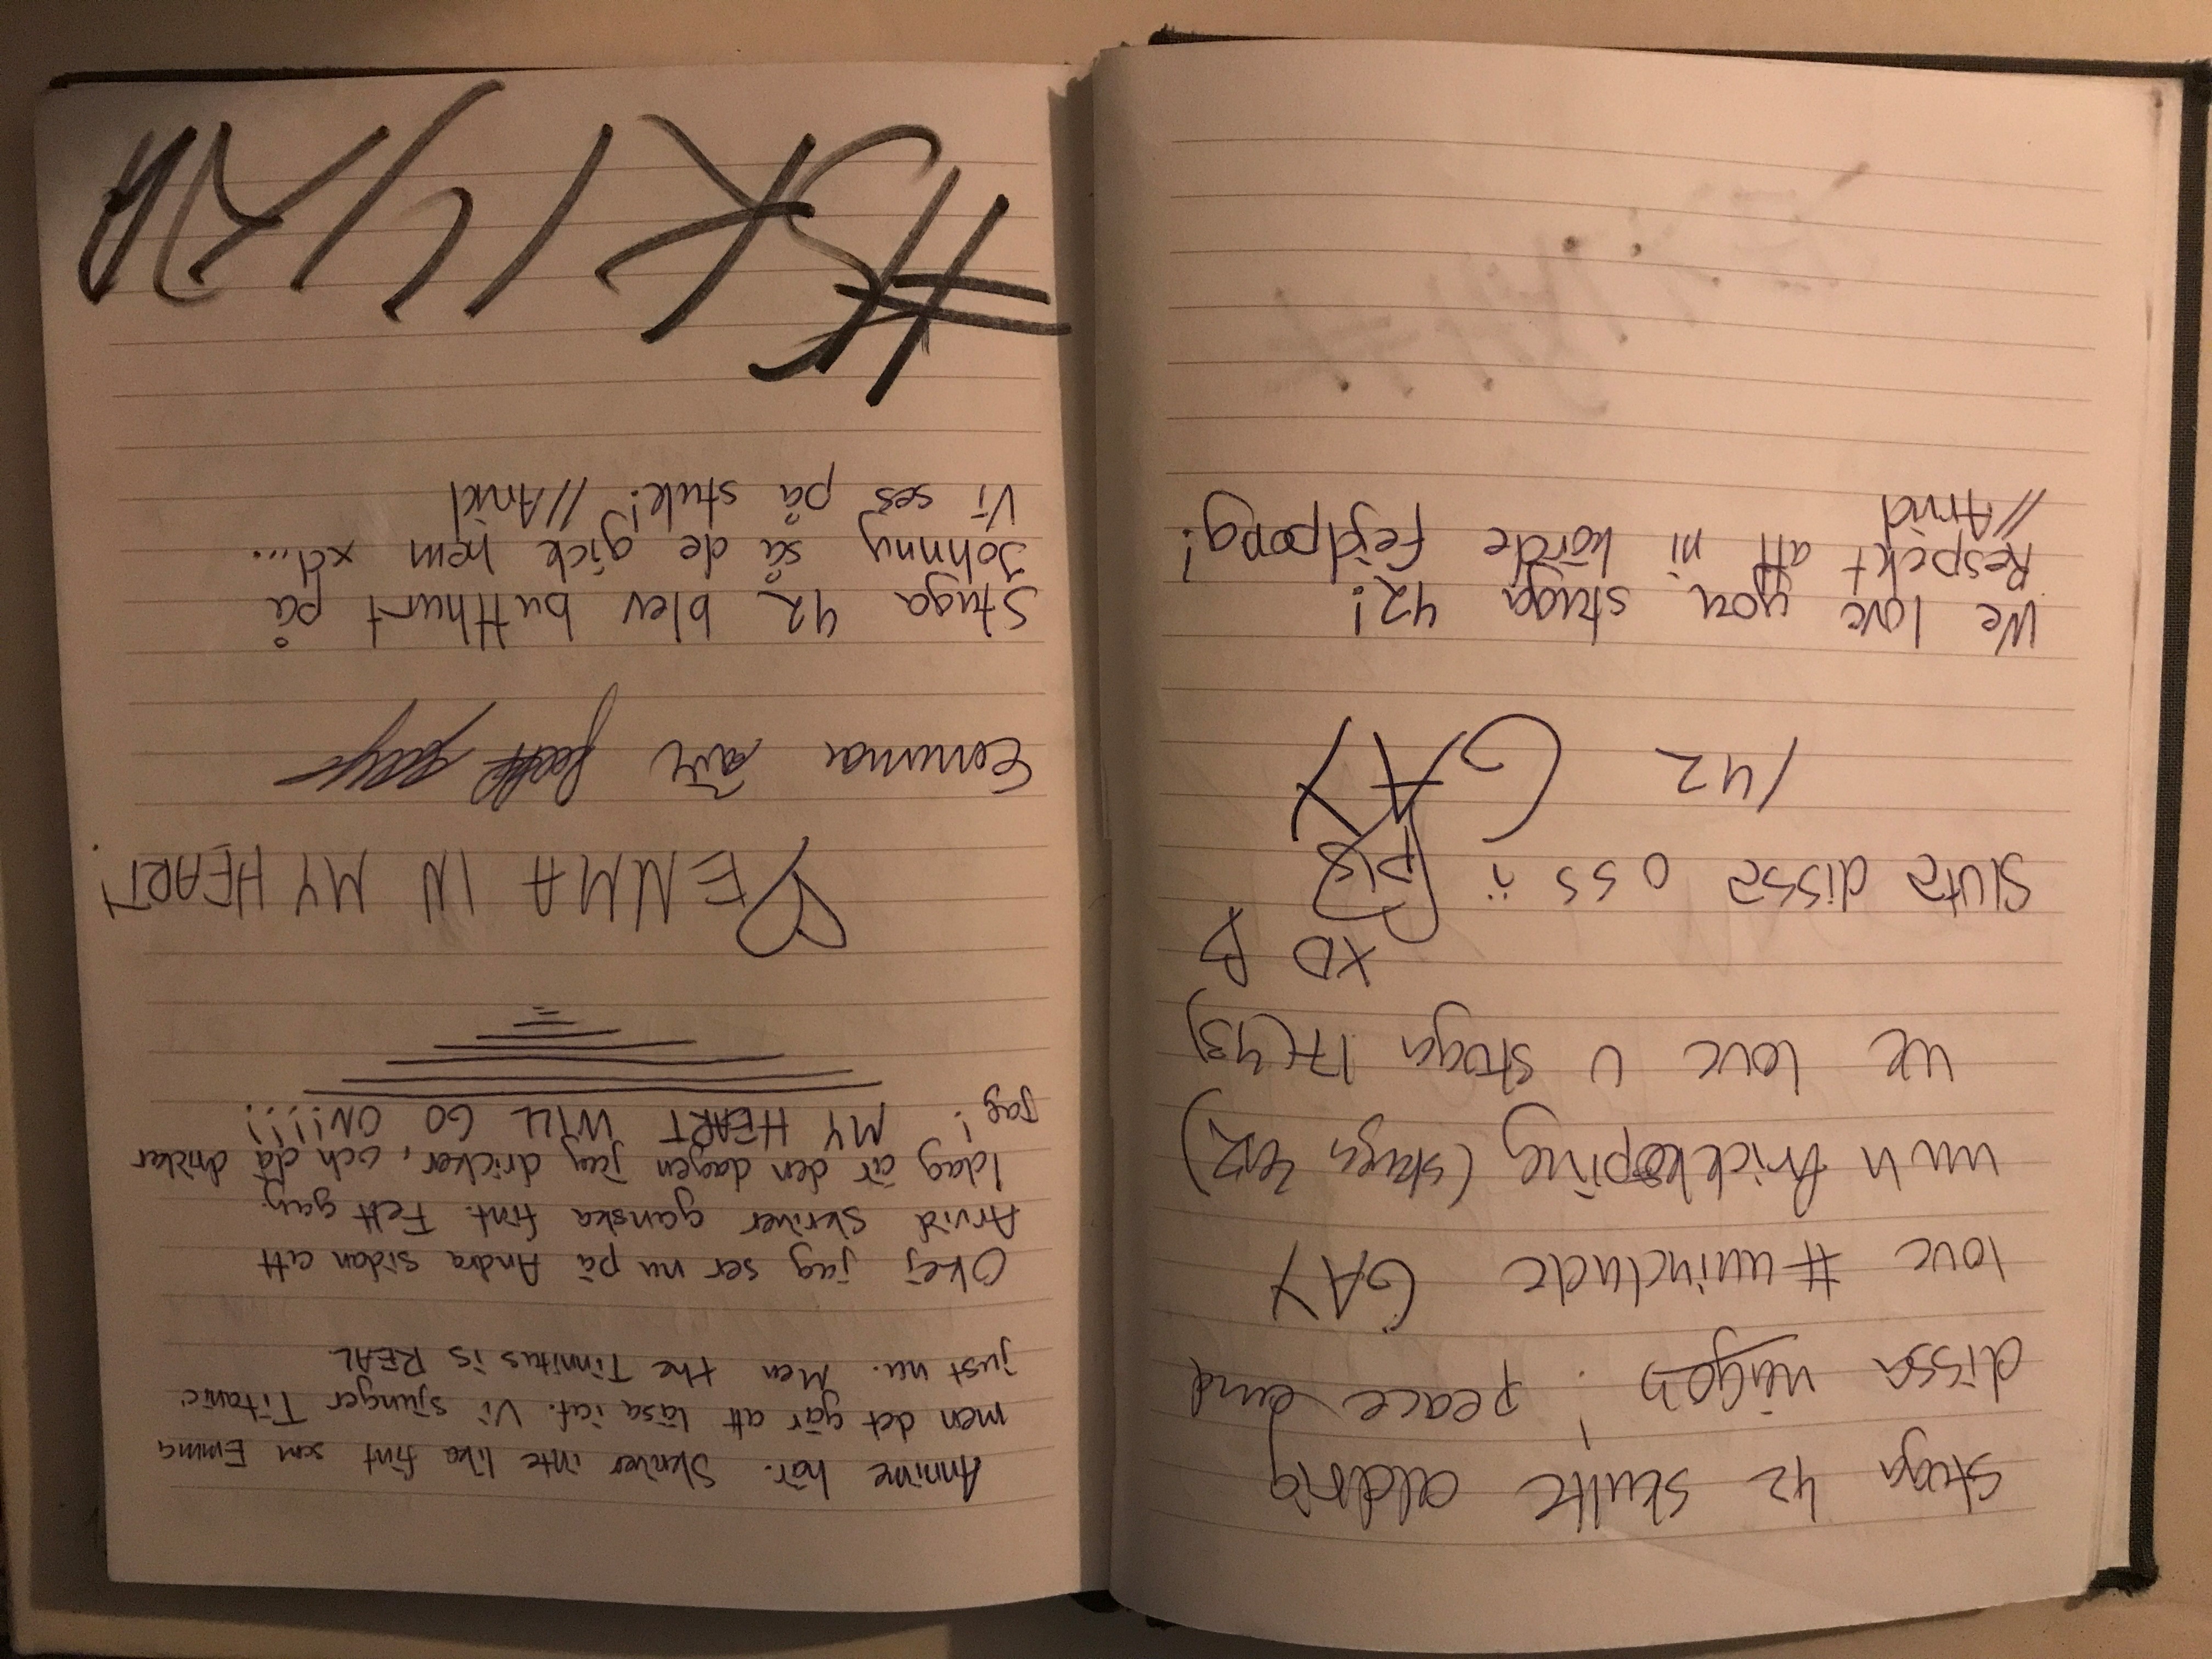 stuga 42 skulle aldrig
dissa någon! peace and
love #uuinclude GAY
mvh frickköping (stuga 42)
we love u stuga 17(43)
XD B
sluta dissa oss ü pls
/42 GAY
We love you stuga 42!
Respekt att ni körde fejdpong!
//Arvid
Annine här. Skriver inte lika fint som Emma
men det går att läsa iaf. Vi sjunger Titanic
just nu. Men the Tinnitus is REAL
Okej jag ser nu på Andra sidan att
Arvid skriver ganska fint. Fett gay.
Idag är den dagen jag dricker, och då dricker
jag! MY HEART WILL GO ON!!!!
EMMA IN MY HEART!
Emma är
Stuga 42 blev butthurt på
Johnny så de gick hem xd...
Vi ses på stuk! //Arvid